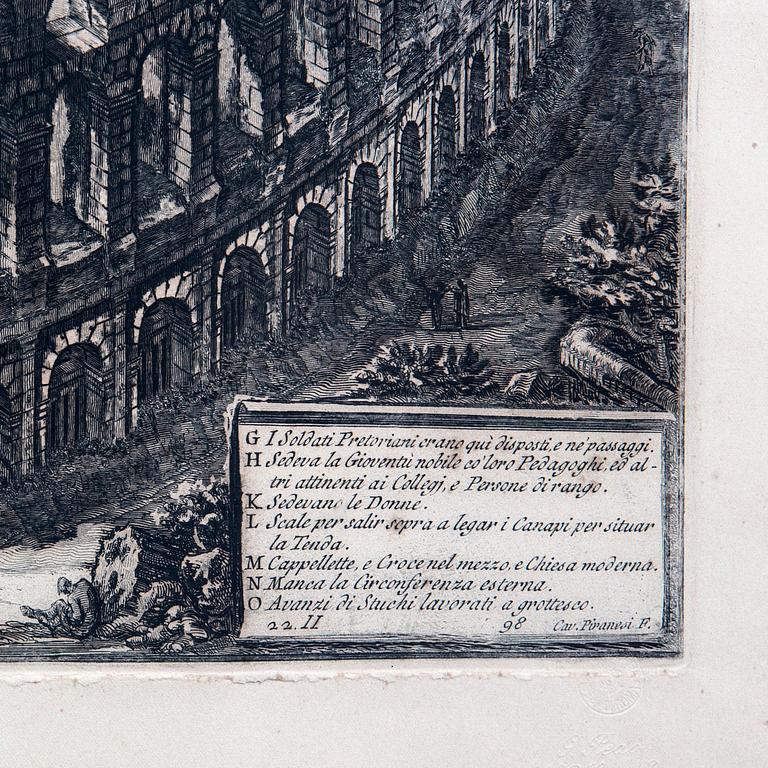 G I Soldati Pretoriani erano quì disposti, e ne' passaggi.
H Sedeva la Gioventù nobile co' loro Pedagoghi, ed al-
tri attinenti ai Collegi, e Persone di rango.
K Sedevano le Donne.
L Scale per salir sopra a legar i Canapi per situar
la Tenda.
M Cappellette, e Croce nel mezzo, e Chiesa moderna.
N Manca la Circonferenza esterna.
O Avanzi di Stuchi lavorati a grottesco.
22. II 98 Cav. Piranesi F.